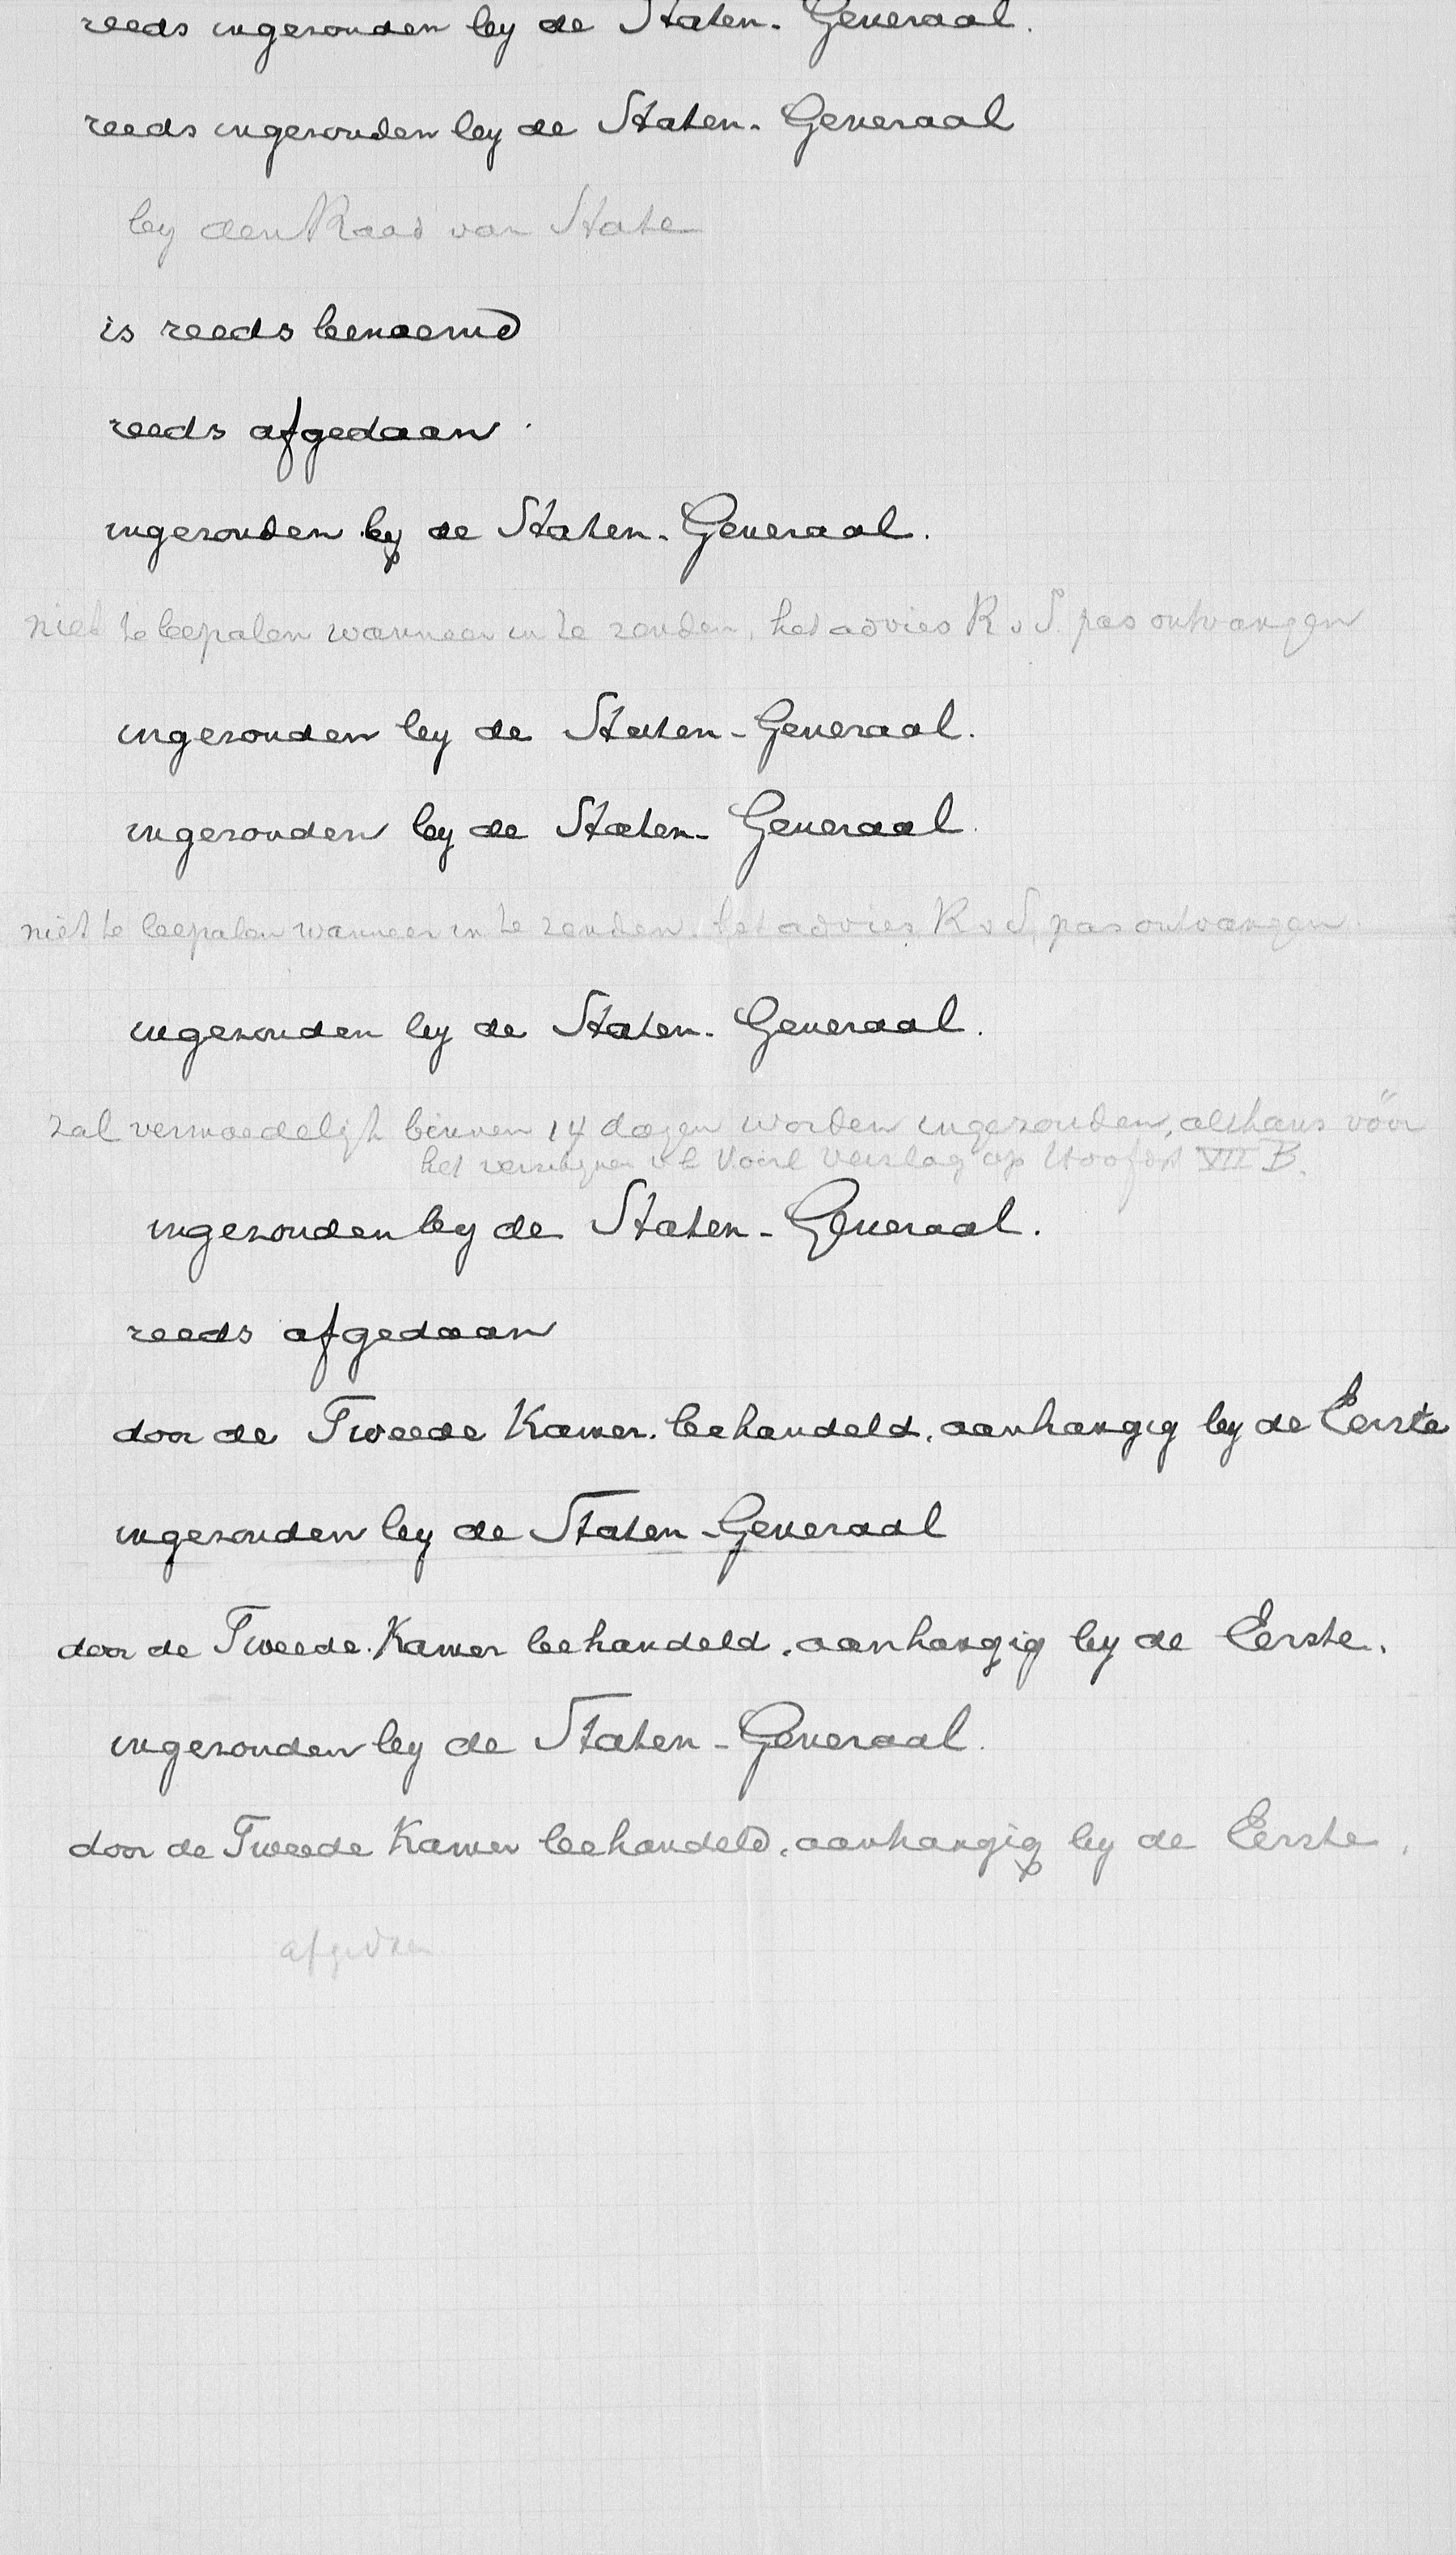 reeds ingezonden by de Staten-Generaal.
reeds ingezonden by de Staten-Generaal
by den Raad van State
is reeds benoemd
reeds afgedaan.
ingezonden by de Staten-Generaal.
niet te bepalen wanneer in te zenden, het advies R v S. pas ontvangen
ingezonden by de Staten-Generaal.
ingezonden by de Staten-Generaal.
niet te bepalen wanneer in te zenden. het advies R v S. pas ontvangen.
ingezonden by de Staten-Generaal.
zal vermoedelijk binnen 14 dagen worden ingezonden, althans vóór
het verschijnen v h Voorl Verslag op Hoofdst VII B.
ingezonden by de Staten-Generaal.
reeds afgedaan
door de Tweede Kamer behandeld. aanhangig by de Eerste
ingezonden by de Staten-Generaal
door de Tweede Kamer behandeld. aanhangig by de Eerste.
ingezonden by de Staten-Generaal.
door de Tweede Kamer behandeld. aanhangig by de Eerste.
afgedaan